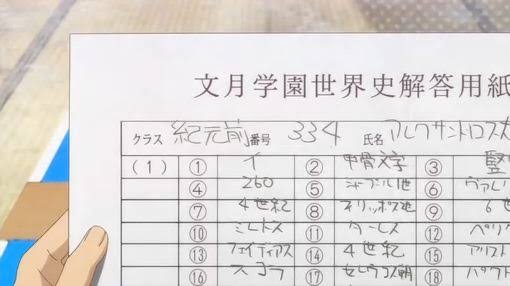 文月学園世界史解答用紙
クラス 紀元前 番号 334 氏名 アレクサンドロス大
(1) ① イ ② 甲骨文字 ③ 竪
④ 260 ⑤ シャープール1世 ⑥ ヴァレリ
⑦ 4世紀 ⑧ フィリッポス2世 ⑨ 6世
⑩ ミレトス ⑪ タレス ⑫ ペリク
⑬ フェイディアス ⑭ 4世紀 ⑮ アリスト
⑯ スコラ ⑰ セレウコス朝 ⑱ パクト